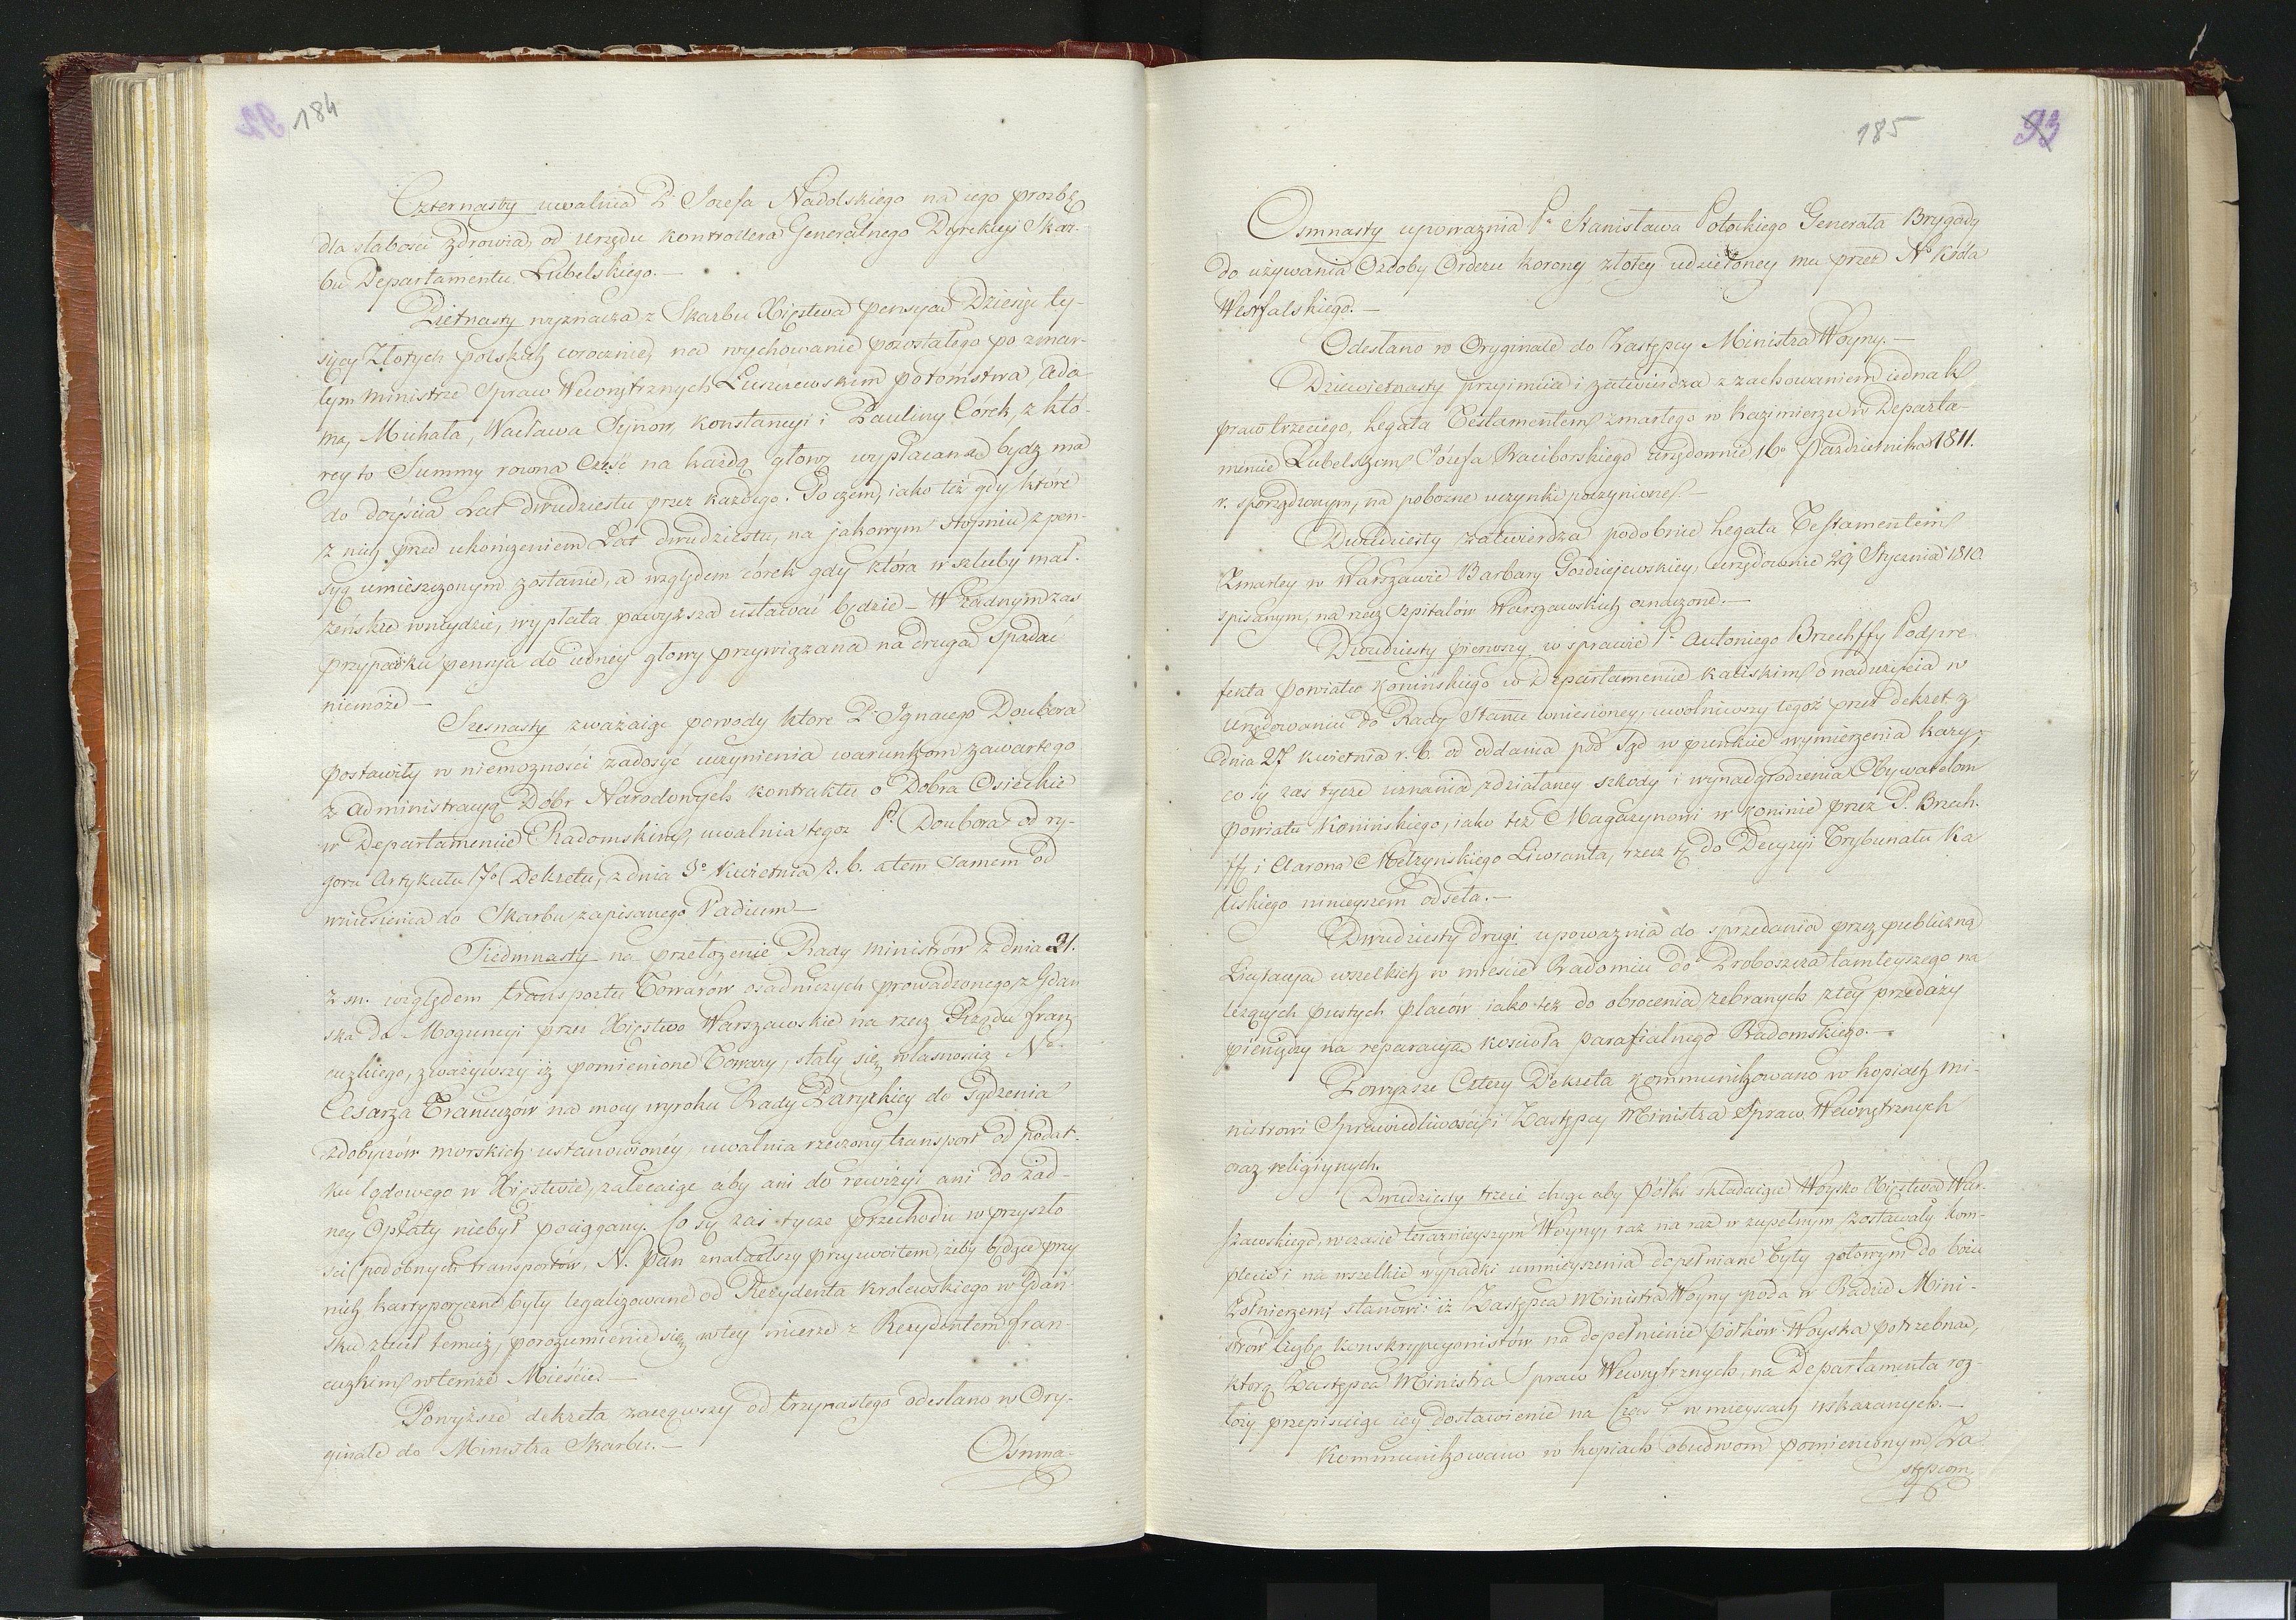 184
Czternasty uwalnia P. Jozefa Nadolskiego na iego prozbę
dla słabości zdrowia, od urzędu kontrollera Generalnego Dyrekcyi Skar-
bu Departamentu Lubelskiego.—
Pietnasty wyznacza z Skarbu Xięstwa pensyą Dziesięć ty-
sięcy Złotych polskich corocznie, na wychowanie pozostałego po zmar-
łym Ministrze Spraw Wewnętrznych Łuszczewskim potomstwa, Ada-
ma, Michała, Wacława Synow, Konstancyi i Pauliny Córek, z któ-
rey to Summy rowna Część na każdą głowę wypłacana bydz ma
do doyścia Lat dwudziestu przez każdego. Po czem, iako też gdy które
z nich przed ukończeniem Lat dwudziestu, na jakowym stopniu z pen-
syą umieszczonym zostanie, a względem córek gdy która w szluby mał-
żeńskie wnidzie, wypłata powyższa ustawać będzie — W żadnym zas
przypadku pensyja do iedney głowy przywiązana na drugą spadać
niemoże —
Szesnasty zważaiąc powody ktore P. Ignacego Doubora
postawiły w niemożności zadosyć uczynienia warunkom zawartego
z Administracyą Dóbr Narodowych kontraktu o Dobra Osieckie
w Departamencie Radomskim, uwalnia tegoz P. Doubora od ry-
goru Artykułu 7o Dekretu, z dnia 3o Kwietnia r. b. a tem samem od
wniesienia do Skarbu zapisanego Vadium —
Siedmnasty na przełożenie Rady Ministrów z dnia 21.
z. m. względem transportu Towarów osadniczych prowadzonego z Gdan
ska do Moguncyi przez Xięstwo Warszawskie na rzecz Rządu fran-
cuzkiego, zważywszy iż pomienione Towary, stały się własnością No
Cesarza Francuzów na mocy wyroku Rady Paryzkiey do Sądzenia
zdobyczów morskich ustanowioney, uwalnia rzeczony transport od podat-
ku lądowego w Xięstwie, zalecaiąc aby ani do rewizyi ani do żad-
ney Opłaty niebył pociągany. Co się zaś tycze przechodu w przyszło
ści podobnych transportów, N. Pan znalazłszy przyzwoitem, żeby będące przy
nich karty poręczne były legalizowane od Rezydenta Krolewskiego w Gdań-
sku zlecił temuż, porozumienie się w tey mierze z Rezydentem fran-
cuzkim w temże Mieście —
Powyższe dekreta zacząwszy od trzynastego odesłano w Ory-
ginale do Ministra Skarbu.—
Osmna-
185
93
Osmnasty upoważnia P. Stanisława Potockiego Generała Brygady
do używania Ozdoby Orderu Korony złotey udzieloney mu przez No Króla
Westfalskiego.—
Odesłano w Oryginale do Zastępcy Ministra Woyny.—
Dziewietnasty przyimuie i zatwierdza z zachowaniem iednak
praw trzeciego, Legata Testamentem zmarłego w Kazimierzu w Departa-
mencie Lubelskim Józefa Raciborskiego urzędownie 16o Pazdziernika 1811.
r. sporządzonym, na pobożne uczynki poczynione.—
Dwudziesty zatwierdza podobnie Legata Testamentem
Zmarłey w Warszawie Barbary Gozdziejewskiey, urzędownie 29 Stycznia 1810.
spisanym, na rzecz Szpitalów Warszawskich czynione.—
Dwudziesty pierwszy w sprawie P. Antoniego Brzechffy Podpre-
fekta Powiatu Konińskiego w Departamencie Kaliskim o nadużycia w
urzędowaniu do Rady Stanu wniesioney, uwolniwszy tegoż przez dekret z
dnia 27 Kwietnia r. b. od oddania pod Sąd w punkcie wymierzenia kary,
co się zas tycze uznania zdziałaney szkody i wynadgrodzenia Obywatelom
Powiatu Konińskiego, iako też Magazynowi w Koninie przez P. Brzech-
ffę i Aarona Mełzynskiego Liweranta, rzecz tę do Decyzyi Trybunału Ka
liskiego ninieyszem odseła.—
Dwudziesty drugi upoważnia do sprzedania przez publiczną
Licytacyą wszelkich w mieście Radomiu do Proboszcza tamteyszego na
leżących pustych placów iako też do obrócenia zebranych z tey przedaży
pieniędzy na reparacyą kościoła parafialnego Radomskiego.—
Powyższe Cztery Dekreta kommunikowano w kopiach Mi-
nistrowi Sprawiedliwości i Zastępcy Ministra Spraw Wewnętrznych
oraz religiynych.
Dwudziesty trzeci chcąc aby półki składaiące Woysko Xięstwa War-
szawskiego, w czasie teraznieyszym Woyny, raz na raz w zupełnym zostawały kom-
plecie i na wszelkie wypadki umnieyszenia dopełniane były gotowym do boiu
żołnierzem; stanowi: iż Zastępca Ministra Woyny poda w Radzie Mini-
strów liczbę konskrypcyonistów na dopełnienie półków Woyska potrzebną,
ktorą Zastępca Ministra Spraw Wewnętrznych, na Departamenta roz-
łoży przepisuiąc iey dostawienie na Czas i w mieyscach wskazanych.—
Kommunikowano w kopiach obudwom pomienionym Za
stępcom